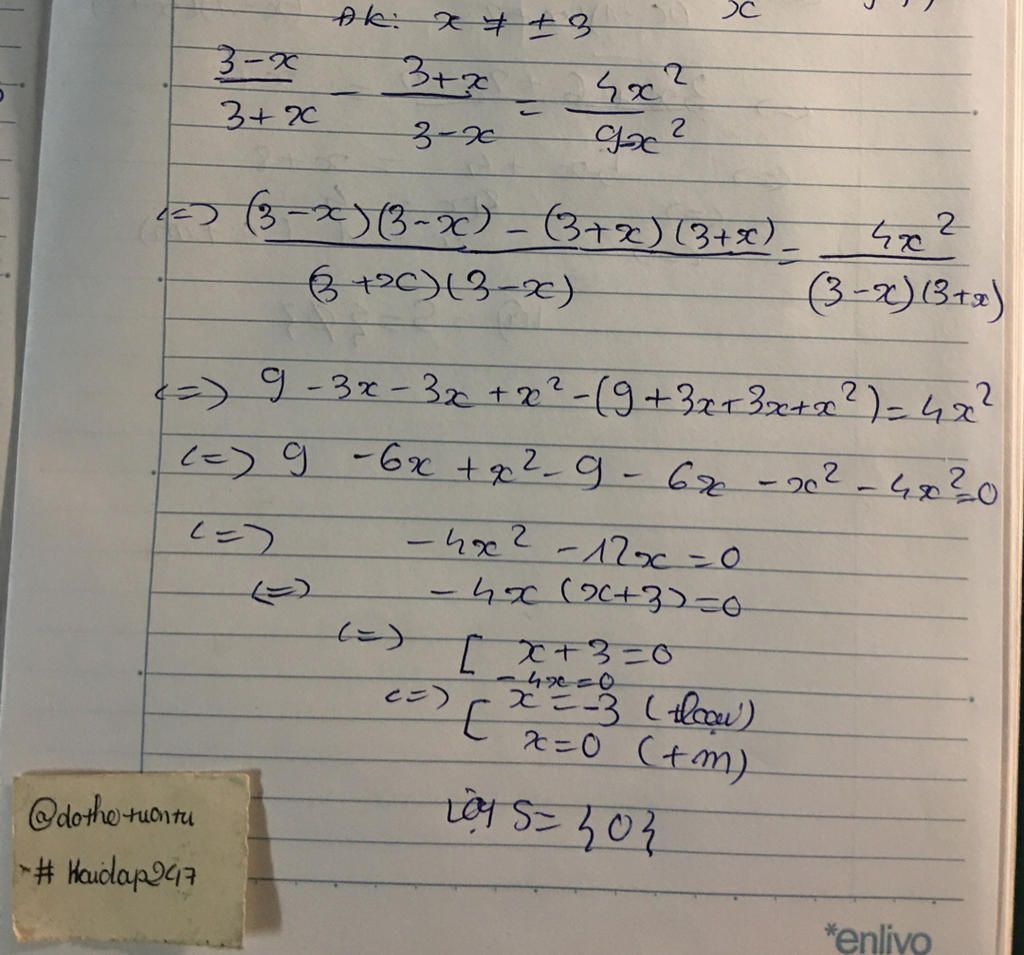 ĐK: x ≠ ± 3
3-x / 3+x - 3+x / 3-x = 4x² / 9-x²
<=> (3-x)(3-x) - (3+x)(3+x) / (3+x)(3-x) = 4x² / (3-x)(3+x)
<=> 9 - 3x - 3x + x² - (9 + 3x + 3x + x²) = 4x²
<=> 9 - 6x + x² - 9 - 6x - x² - 4x² = 0
<=> -4x² - 12x = 0
<=> -4x (x+3) = 0
<=> [ x + 3 = 0
-4x = 0
<=> [ x = -3 (loại)
x = 0 (tm)
Vậy S = {0}
@dothetuantu
# Hoidap247
*enlivo